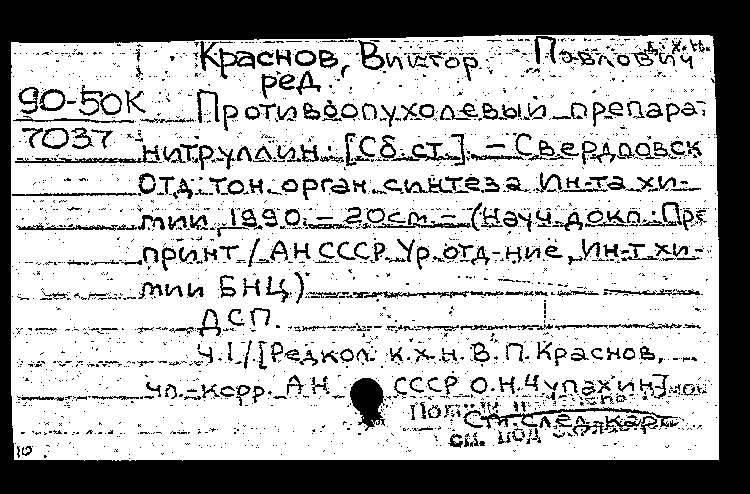 Краснов, Виктор Павлович д.х.н.
ред
90-50К
7037
Противоопухолевый препарат
нитруллин: [Сб. ст.]. – Свердловск
Отд. тон. орган. синтеза Ин-та хи-
мии, 1990. – 20см. – (Науч. докл.: Пре
принт / АН СССР Ур. отд-ние, Ин-т хи-
мии БНЦ)
ДСП.
Ч. I / [Редкол. к.х.н. В. П. Краснов,
чл.-корр. АН СССР О.Н. Чупахин]
См. след. карт
см. под
10